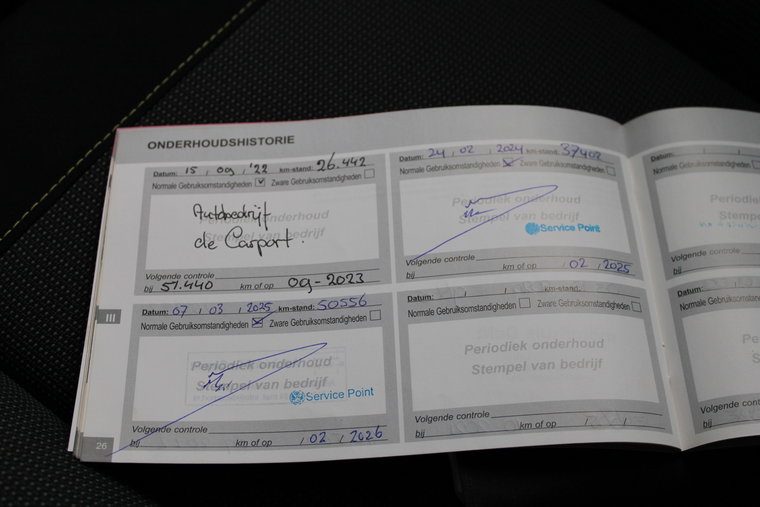 ONDERHOUDSHISTORIE
Datum: 15 , 09 , '22 km-stand: 26.442
Normale Gebruiksomstandigheden Zware Gebruiksomstandigheden
Periodiek onderhoud
Stempel van bedrijf
Autobedrijf
de Carport.
Volgende controle
bij 51.440 km of op 09-2023
Datum: 24 , 02 , 2024 km-stand: 37402
Normale Gebruiksomstandigheden Zware Gebruiksomstandigheden
Periodiek onderhoud
Stempel van bedrijf
Service Point
Volgende controle
bij km of op / 02 / 2025
Datum: 07 / 03 / 2025 km-stand: 50556
Normale Gebruiksomstandigheden Zware Gebruiksomstandigheden
Periodiek onderhoud
Stempel van bedrijf
Service Point
Volgende controle
bij km of op / 02 / 2026
Datum: / / km-stand:
Normale Gebruiksomstandigheden Zware Gebruiksomstandigheden
Periodiek onderhoud
Stempel van bedrijf
Volgende controle
bij km of op / /
Datum:
Normale Gebruiksomstandig
Periodi
Stemp
Volgende controle
bij
Datum:
Normale Gebruiksomst
Per
Ste
Volgende controle
bij
III
26